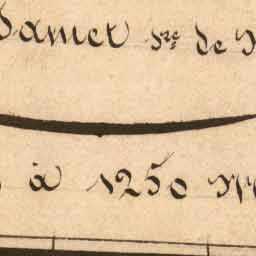 Samet Sre de
à 1250